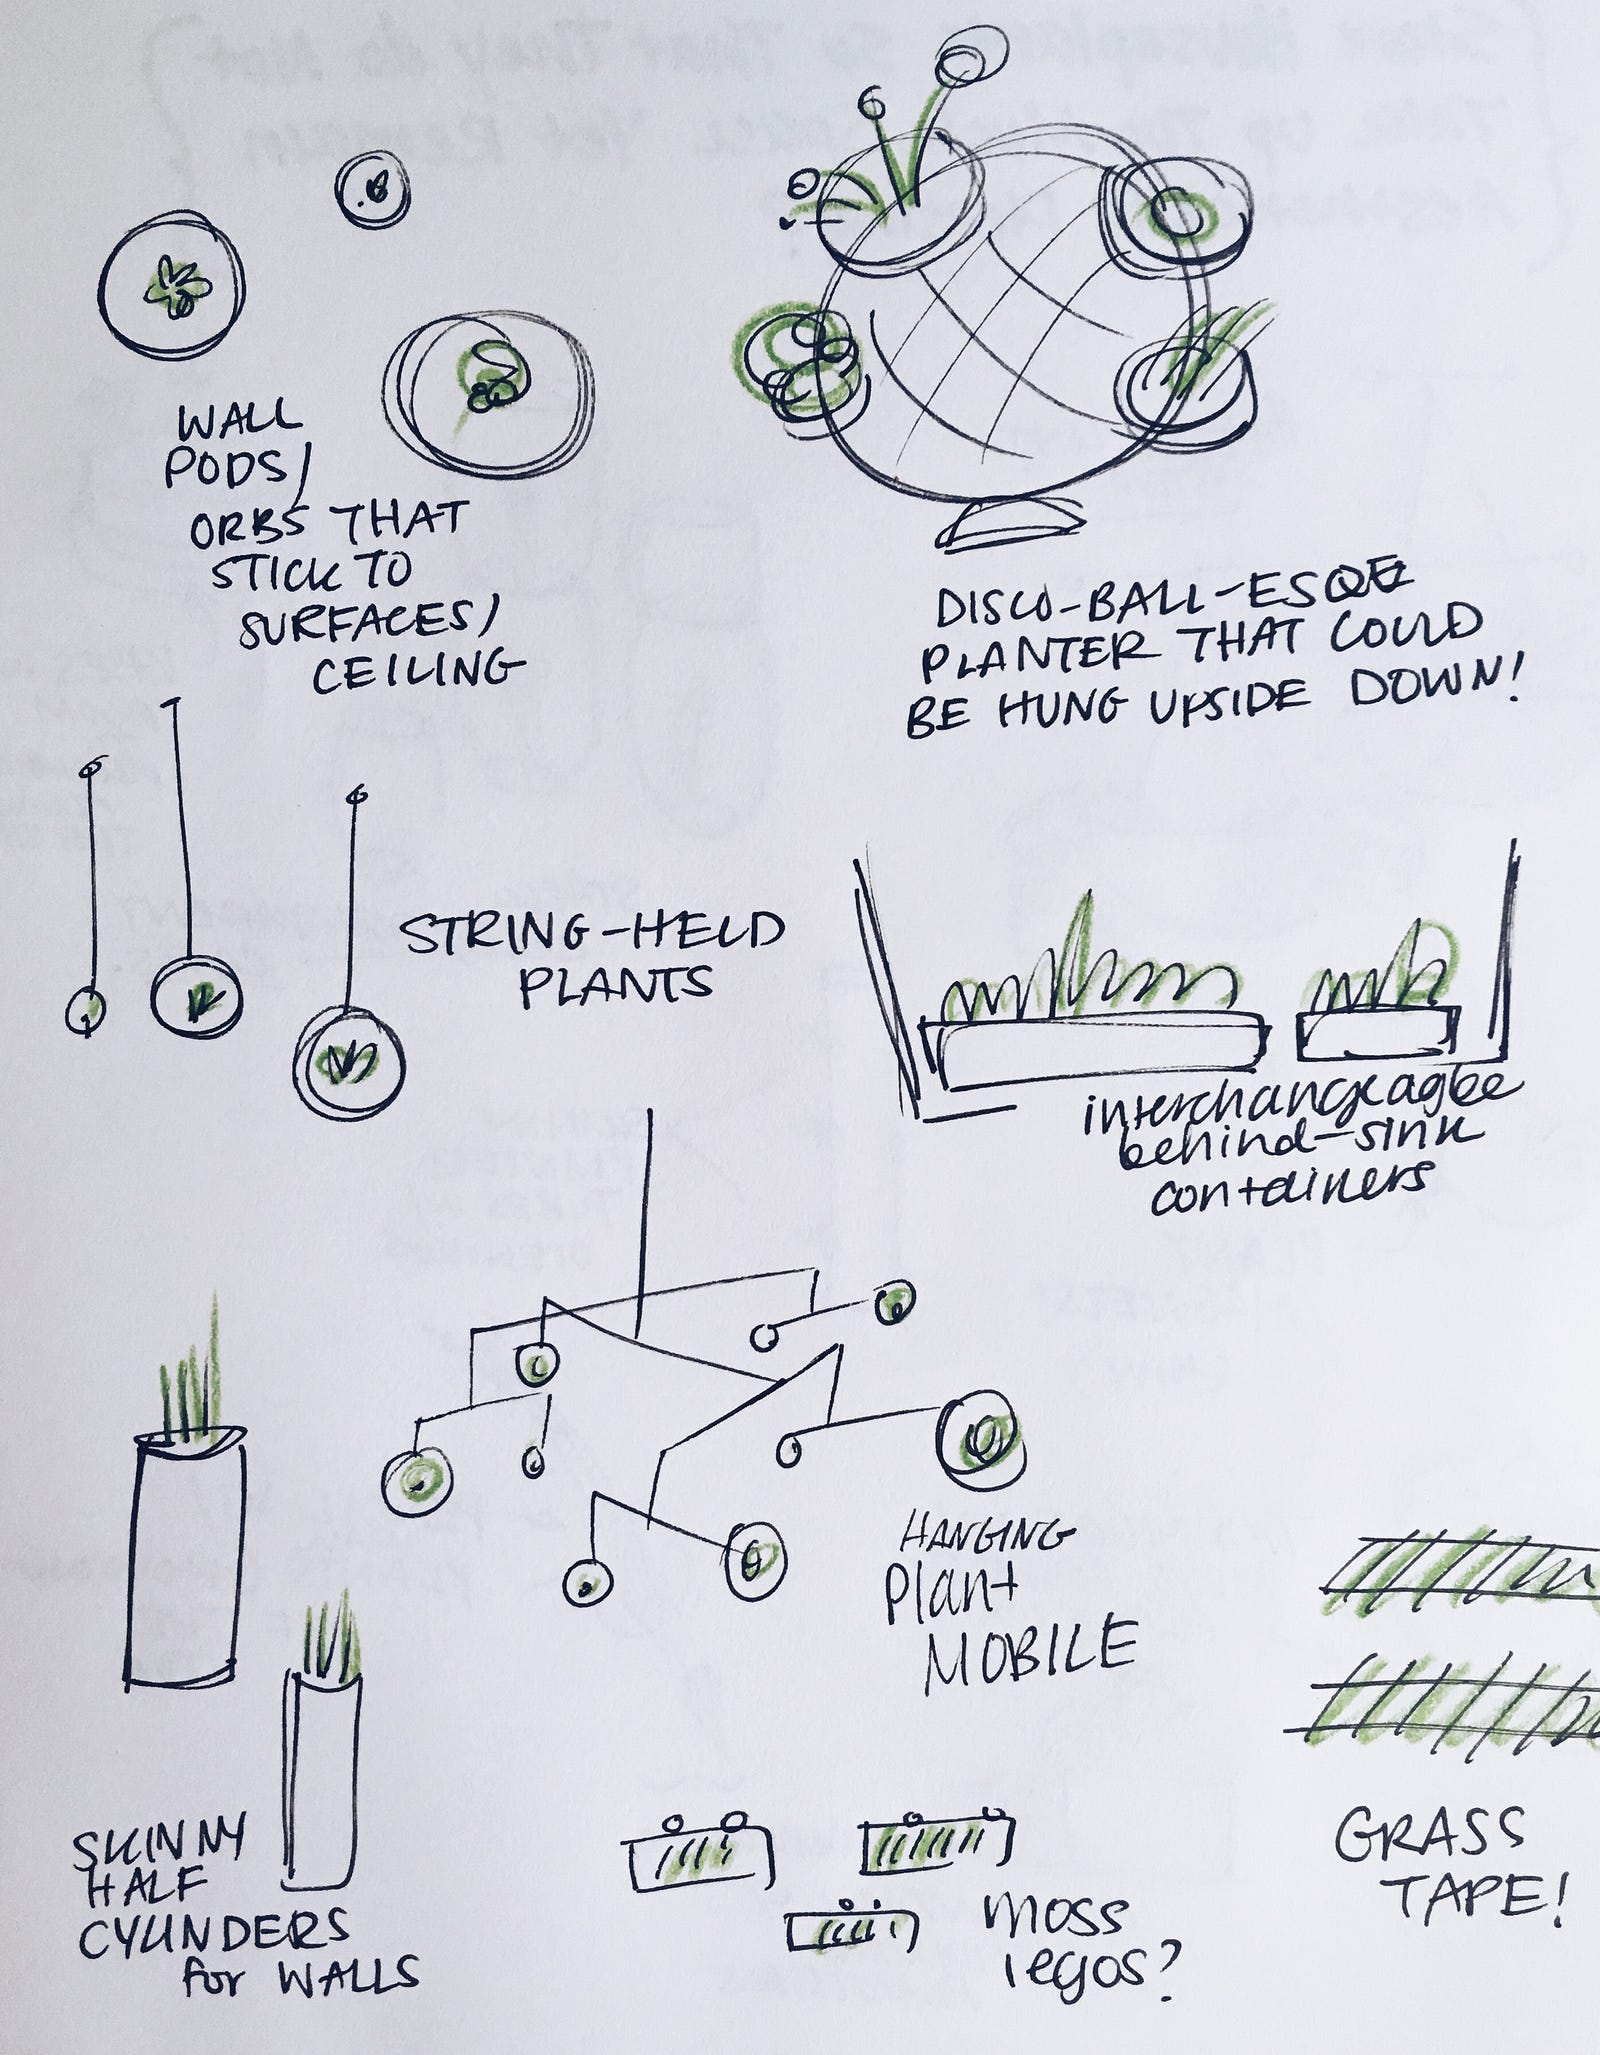 WALL
PODS/
ORBS THAT
STICK TO
SURFACES/
CEILING
DISCO-BALL-ESQE
PLANTER THAT COULD
BE HUNG UPSIDE DOWN!
STRING-HELD
PLANTS
interchangeagbe
behind-sink
containers
HANGING
Plant
MOBILE
SKINNY
HALF
CYLINDERS
for WALLS
MOSS
legos?
GRASS
TAPE!